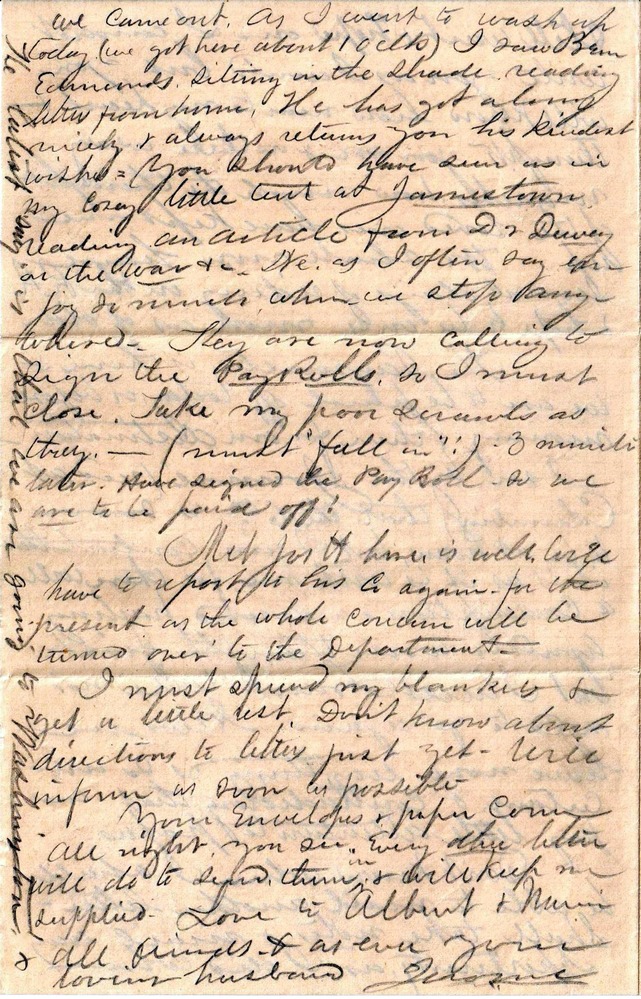 we came out. As I went to wash up
today (we got here about 1 oclk) I saw Ben
Edmonds sitting in the shade reading
letter from home. He has got along
nicely & always returns you his kindest
wishes = You should have seen us in
my cosey little tent at Jamestown
reading an article from Dr Dewey
on the war &c. We as I often say en-
joy so much when we stop any-
where - They are now calling to
sign the Pay Rolls. so I must
close. Take my poor scrawls as
they. — (must "fall in"!) - 3 minutes
later. Have signed the Pay Roll so we
are to be paid off!
Met here. is well. Will
have to report to his Co again - for the
present as the whole concern will be
turned over to the Department -
I must spread my blankets &
get a little rest. Don't know about
directions to letter just yet - Will
inform as soon as possible
Your Envelopes & paper come
all right you see. Every other letter
will do to send them in & will keep me
supplied - Love to Albert &
all friends & as ever your
loving husband Jerome
The latest is that we are going to Washington &